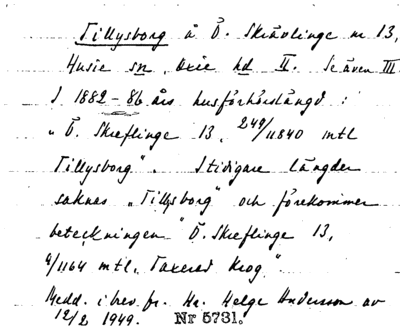 Tillysborg å Ö. Skrävlinge nr 13,
Husie sn, Oxie hd II. Se även III.
I 1882-86 års husförhörslängd :
"Ö. Skreflinge 13, 249/11840 mtl
Tillysborg". I tidigare längder
saknas "Tillysborg" och förekommer
beteckningen "Ö. Skreflinge 13,
4/1164 mtl, Taxerad Krog."
Medd. i brev fr. Hr. Helge Andersson av
12/2 1949. Nr 5731.